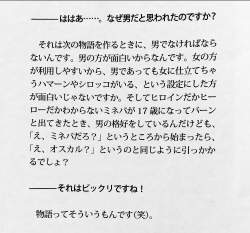 ――――ははあ……。なぜ男だと思われたのですか？
それは次の物語を作るときに、男でなければなら
ないんです。男の方が面白いからなんです。女の方
が利用しやすいから、男であっても女に仕立てちゃ
うハマーンやシロッコがいる、という設定にした方
が面白いじゃないですか。そしてヒロインだかヒー
ローだかわからないミネバが17歳になってバーン
と出てきたとき、男の格好をしているんだけども、
「え、ミネバだろ？」というところから始まったら、
「え、オスカル？」というのと同じように引っかか
るでしょ？
――――それはビックリですね！
物語ってそういうもんです（笑）。